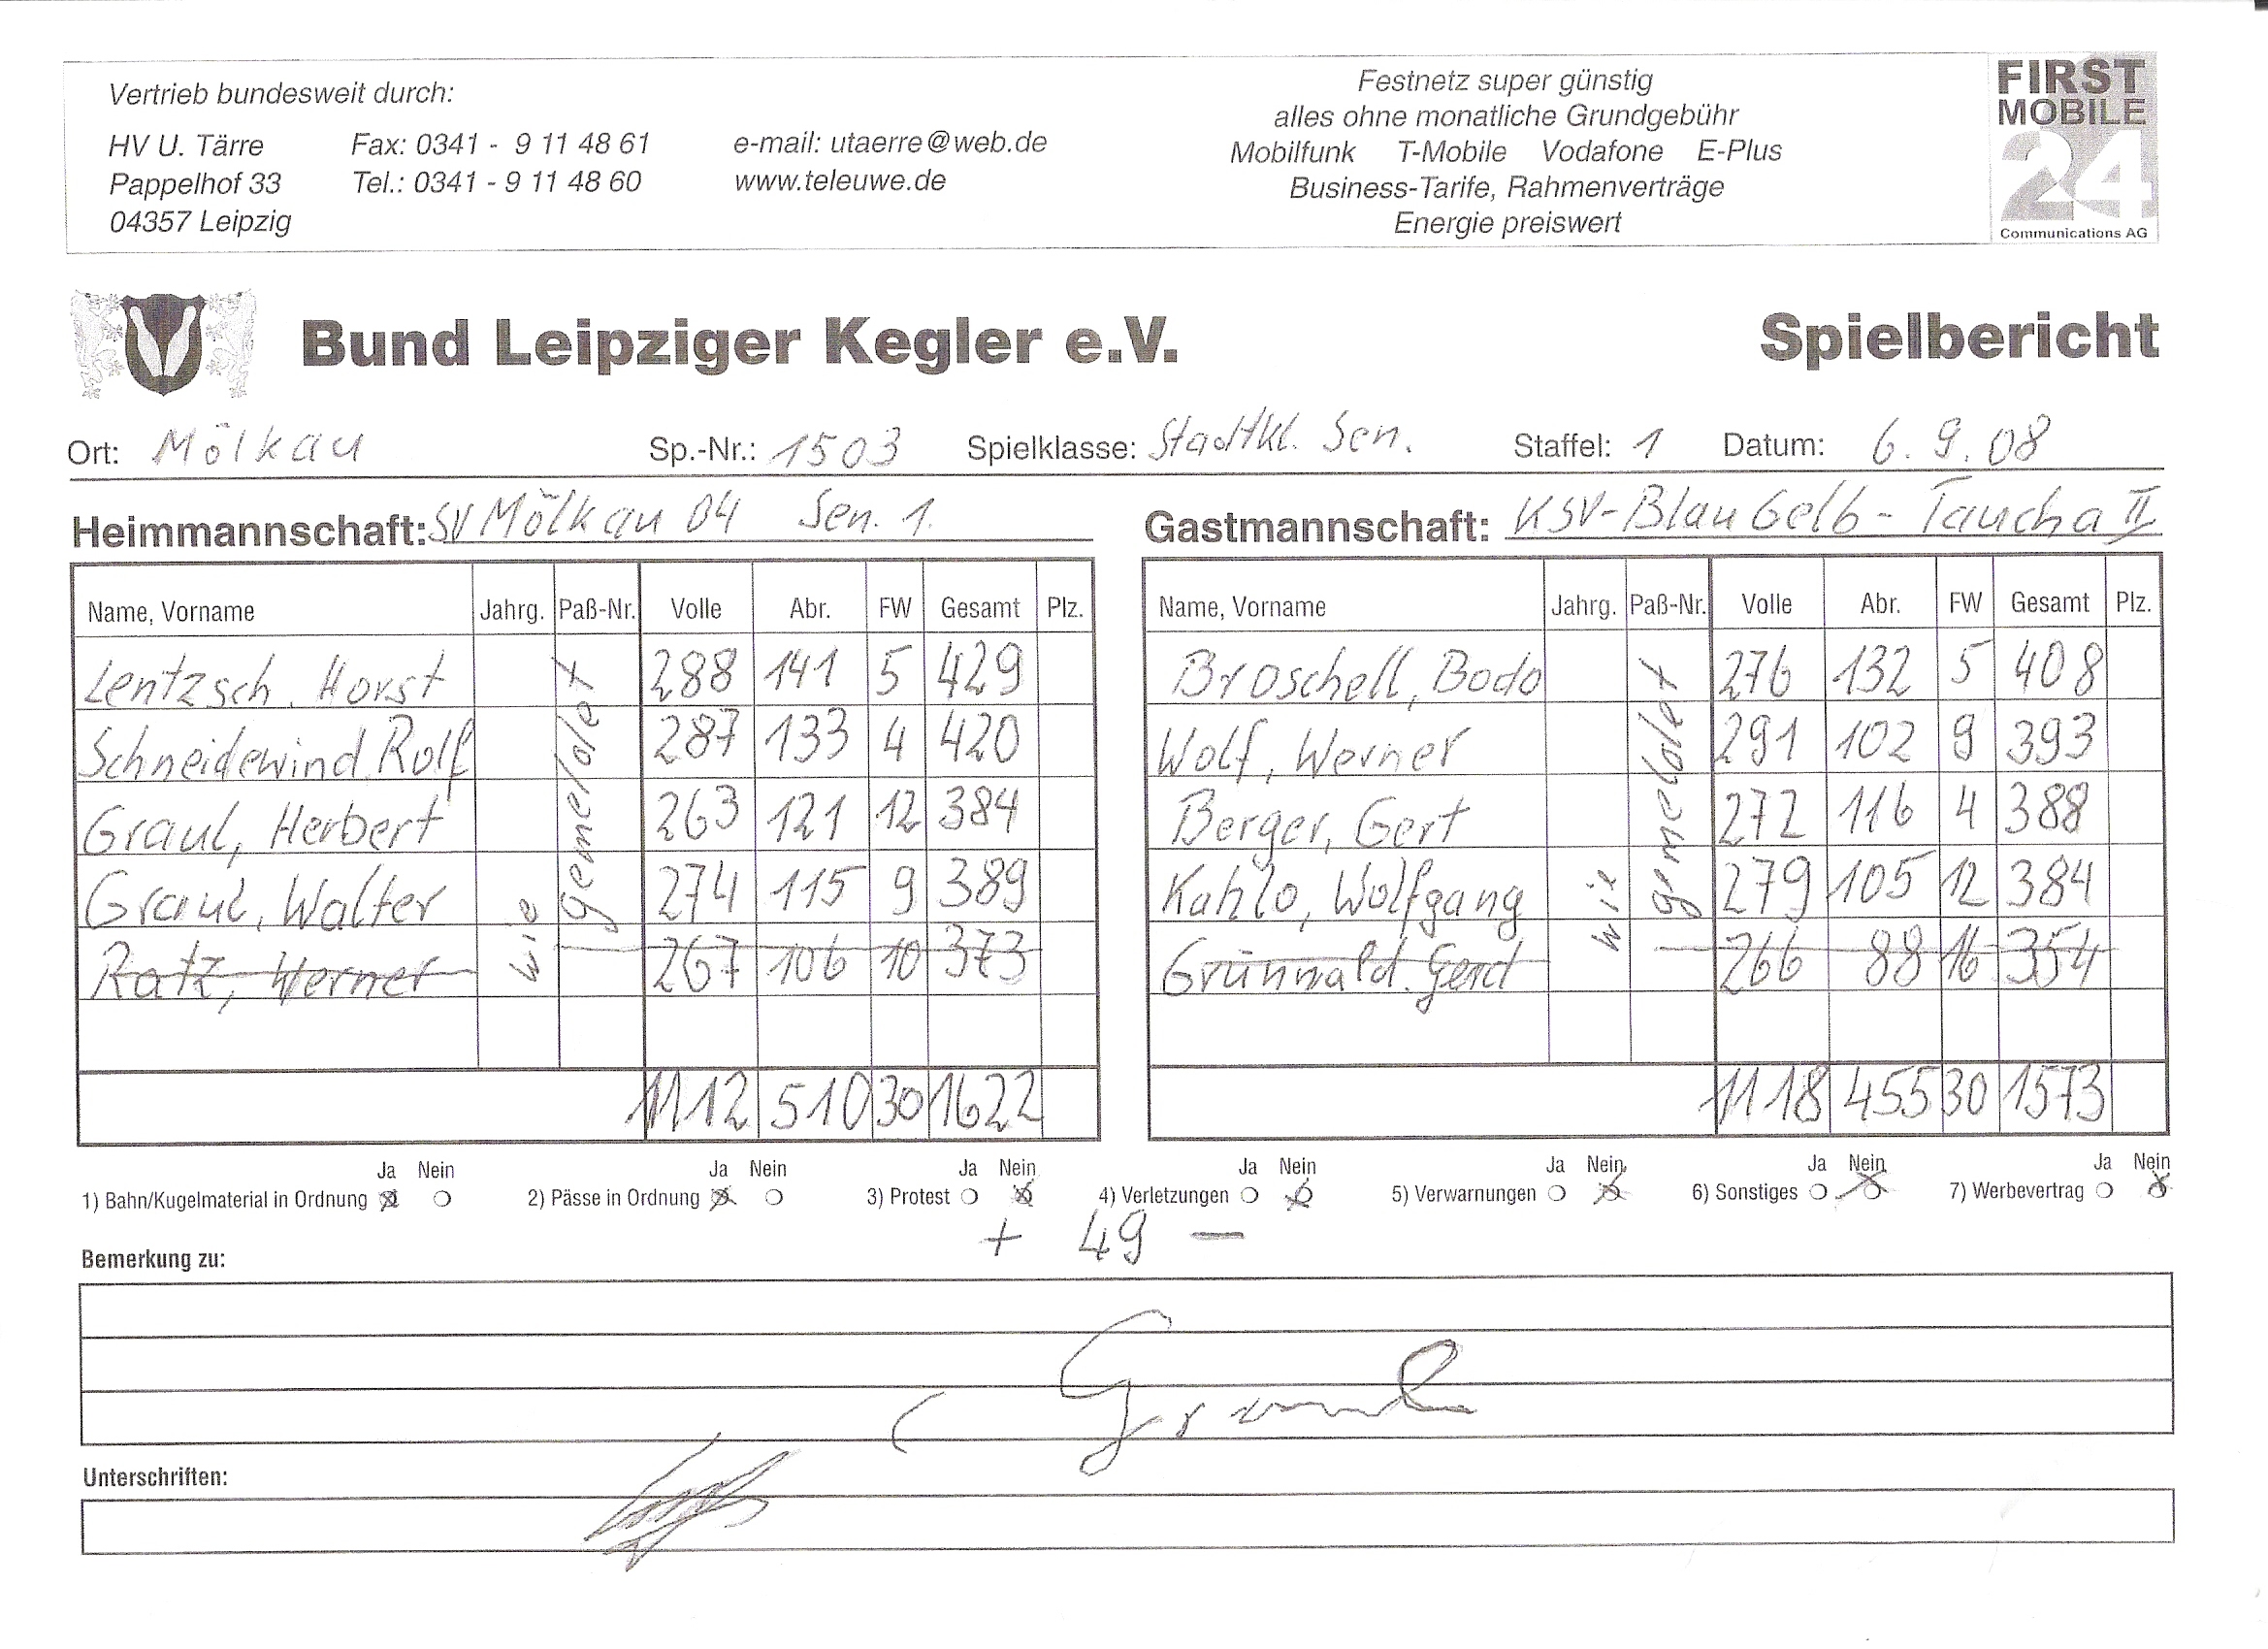 Vertrieb bundesweit durch:
HV U. Tärre Fax: 0341 - 9 11 48 61 e-mail: utaerre@web.de
Pappelhof 33 Tel.: 0341 - 9 11 48 60 www.teleuwe.de
04357 Leipzig
Festnetz super günstig
alles ohne monatliche Grundgebühr
Mobilfunk T-Mobile Vodafone E-Plus
Business-Tarife, Rahmenverträge
Energie preiswert
FIRST
MOBILE
24
Communications AG
Bund Leipziger Kegler e.V. Spielbericht
Ort: Mölkau Sp.-Nr.: 1503 Spielklasse: Stadtkl. Sen. Staffel: 1 Datum: 6.9.08
Heimmannschaft: SV Mölkau 04 Sen. 1.
Name, Vorname Jahrg. Paß-Nr. Volle Abr. FW Gesamt Plz.
Lentzsch, Horst 288 141 5 429
Schneidewind, Rolf 287 133 4 420
Graul, Herbert 263 121 12 384
Graul, Walter 274 115 9 389
Ratz, Werner 267 106 10 373
wie gemeldet
1112 510 30 1622
Gastmannschaft: KSV-Blau Gelb-Taucha II
Name, Vorname Jahrg. Paß-Nr. Volle Abr. FW Gesamt Plz.
Broschell, Bodo 276 132 5 408
Wolf, Werner 291 102 9 393
Berger, Gert 272 116 4 388
Kahlo, Wolfgang 279 105 12 384
Grünwald. Gerd 266 88 16 354
wie gemeldet
1118 455 30 1573
Ja Nein Ja Nein Ja Nein Ja Nein Ja Nein Ja Nein Ja Nein
1) Bahn/Kugelmaterial in Ordnung 2) Pässe in Ordnung 3) Protest 4) Verletzungen 5) Verwarnungen 6) Sonstiges 7) Werbevertrag
+ 49 -
Bemerkung zu:
Unterschriften: